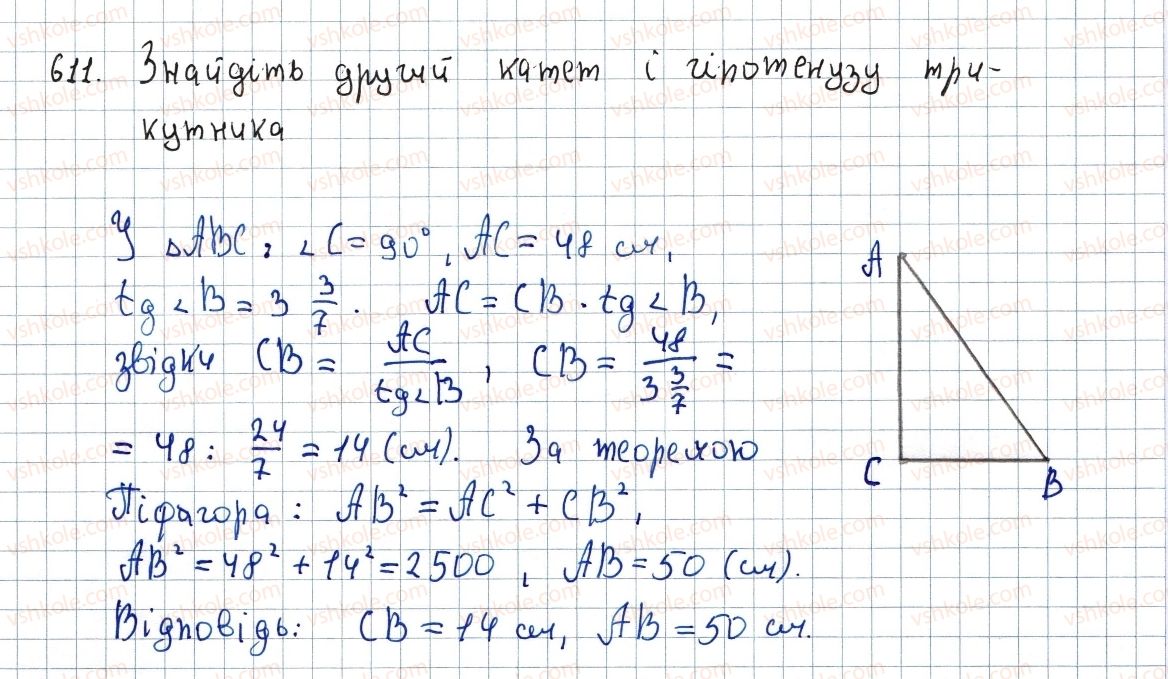 611. Знайдіть другий катет і гіпотенузу три-
кутника
У △ABC: ∠C = 90°, AC = 48 см,
tg∠B = 3 3/7. AC = CB · tg∠B,
звідки CB = AC/tg∠B, CB = 48/(3 3/7) =
= 48 : 24/7 = 14 (см). За теоремою
Піфагора: AB² = AC² + CB²,
AB² = 48² + 14² = 2500, AB = 50 (см).
Відповідь: CB = 14 см, AB = 50 см.
A
C
B
vshkole.com